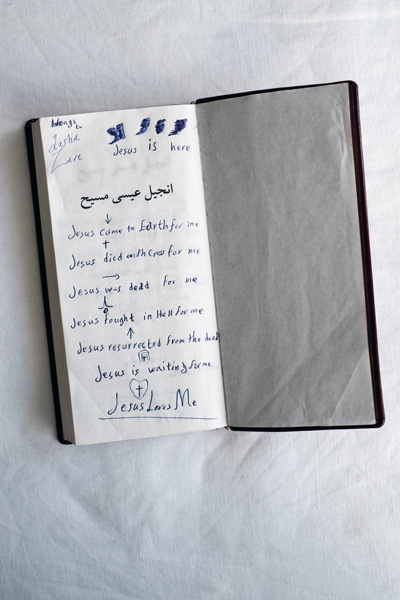 belongs
to
Jesus is here
انجیل عیسی مسیح
Jesus came to Earth for me
Jesus died on the Cross for me
Jesus was dead for me
Jesus fought in Hell for me
Jesus resurrected from the dead
Jesus is waiting for me
Jesus Loves Me